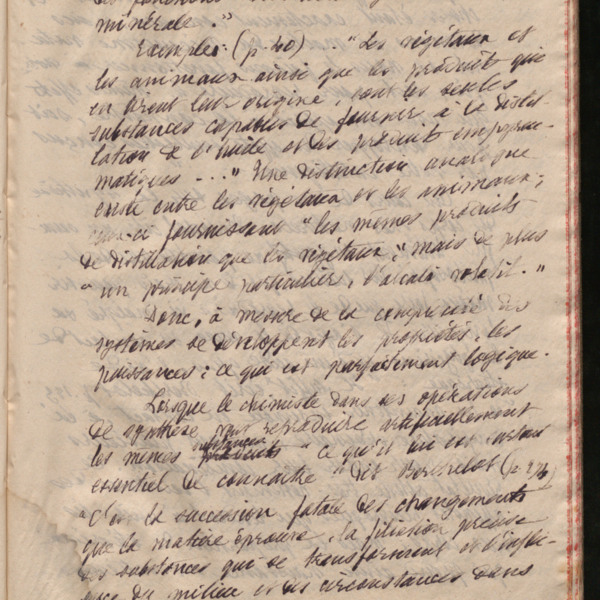 minérale."
Exemples: (p. 40) ... "Les végétaux et
les animaux ainsi que les produits qui
en tirent leur origine, sont les seules
substances capables de fournir, à la distil-
lation de l'huile et des produits empyreu-
matiques ..." Une distinction analogue
existe entre les végétaux et les animaux;
ceux-ci fournissent "les mêmes produits
de distillation que les végétaux," mais de plus
"un principe particulier, l'alcali volatil."
Donc, à mesure de la complexité des
systèmes se développent les propriétés, les
puissances; ce qui est parfaitement logique.
Lorsque le chimiste dans ses opérations
de synthèse veut reproduire artificiellement
les mêmes substances "ce qu'il lui est surtout
essentiel de connaître" dit Berthelot (p 275)
"C'est la succession fatale des changements
que la matière éprouve, la filiation précise
des substances qui se transforment et l'influ-
ence du milieu et des circonstances dans